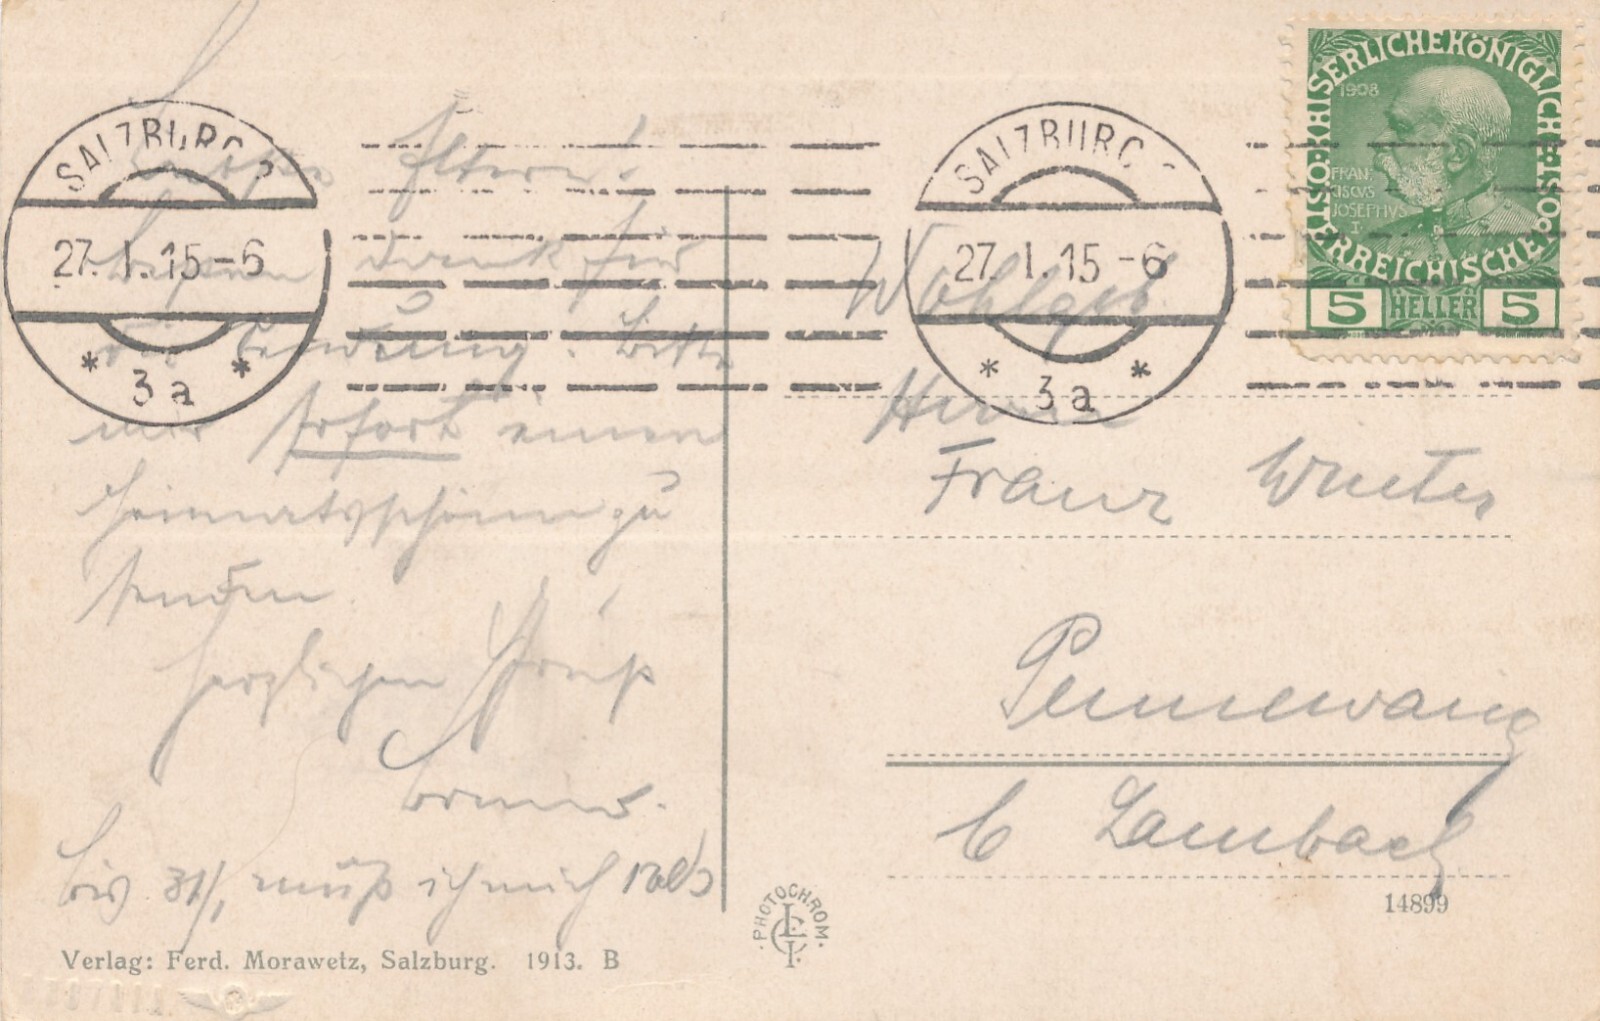 Eltern!
SALZBURG 2
27. I. 15 - 6
* 3a *
SALZBURG 2
27. I. 15 - 6
* 3a *
KAISERLICHE KÖNIGLICHE
ÖSTERREICHISCHE POST
1908
FRAN
CISCVS
JOSEPHVS
I
5 HELLER 5
Dank für
die Sendung. Bitte
mir sofort einen
Heimatschein zu
senden.
Herzlichen Gruß
bis 31/1 muß ich mich
Wohlgeb
Herrn
Franz
Pennewang
b Lambach
14899
PHOTOCHROM
Verlag: Ferd. Morawetz, Salzburg. 1913. B